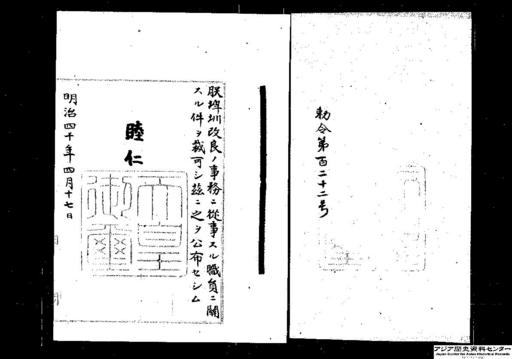 勅令第百二十二号
朕埤圳改良ノ事務ニ從事スル職員ニ關
スル件ヲ裁可シ茲ニ之ヲ公布セシム
睦仁
天皇
御璽
明治四十年四月十七日
アジア歴史資料センター
Japan Center for Asian Historical Records